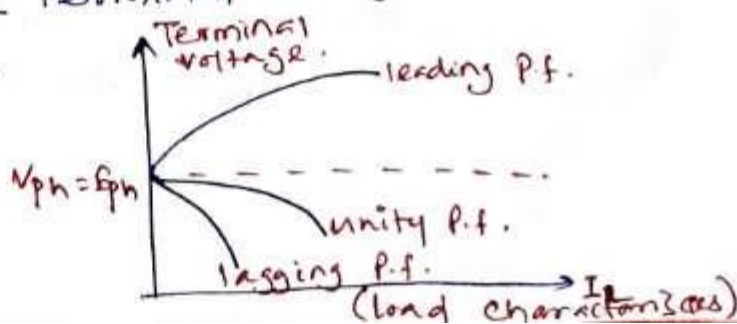 Terminal
voltage.
leading P.f.
Vph = Eph
unity P.f.
lagging P.f.
IL
(load characteristics)